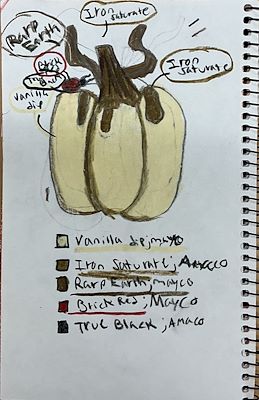 Iron
saturate
Rarp
Earth
Iron
saturate
Brick
Red
True
Black
vanilla
dip
Vanilla dip; mayco
Iron Saturate; Amaco
Rarp Earth; mayco
Brick Red; Mayco
True Black; Amaco